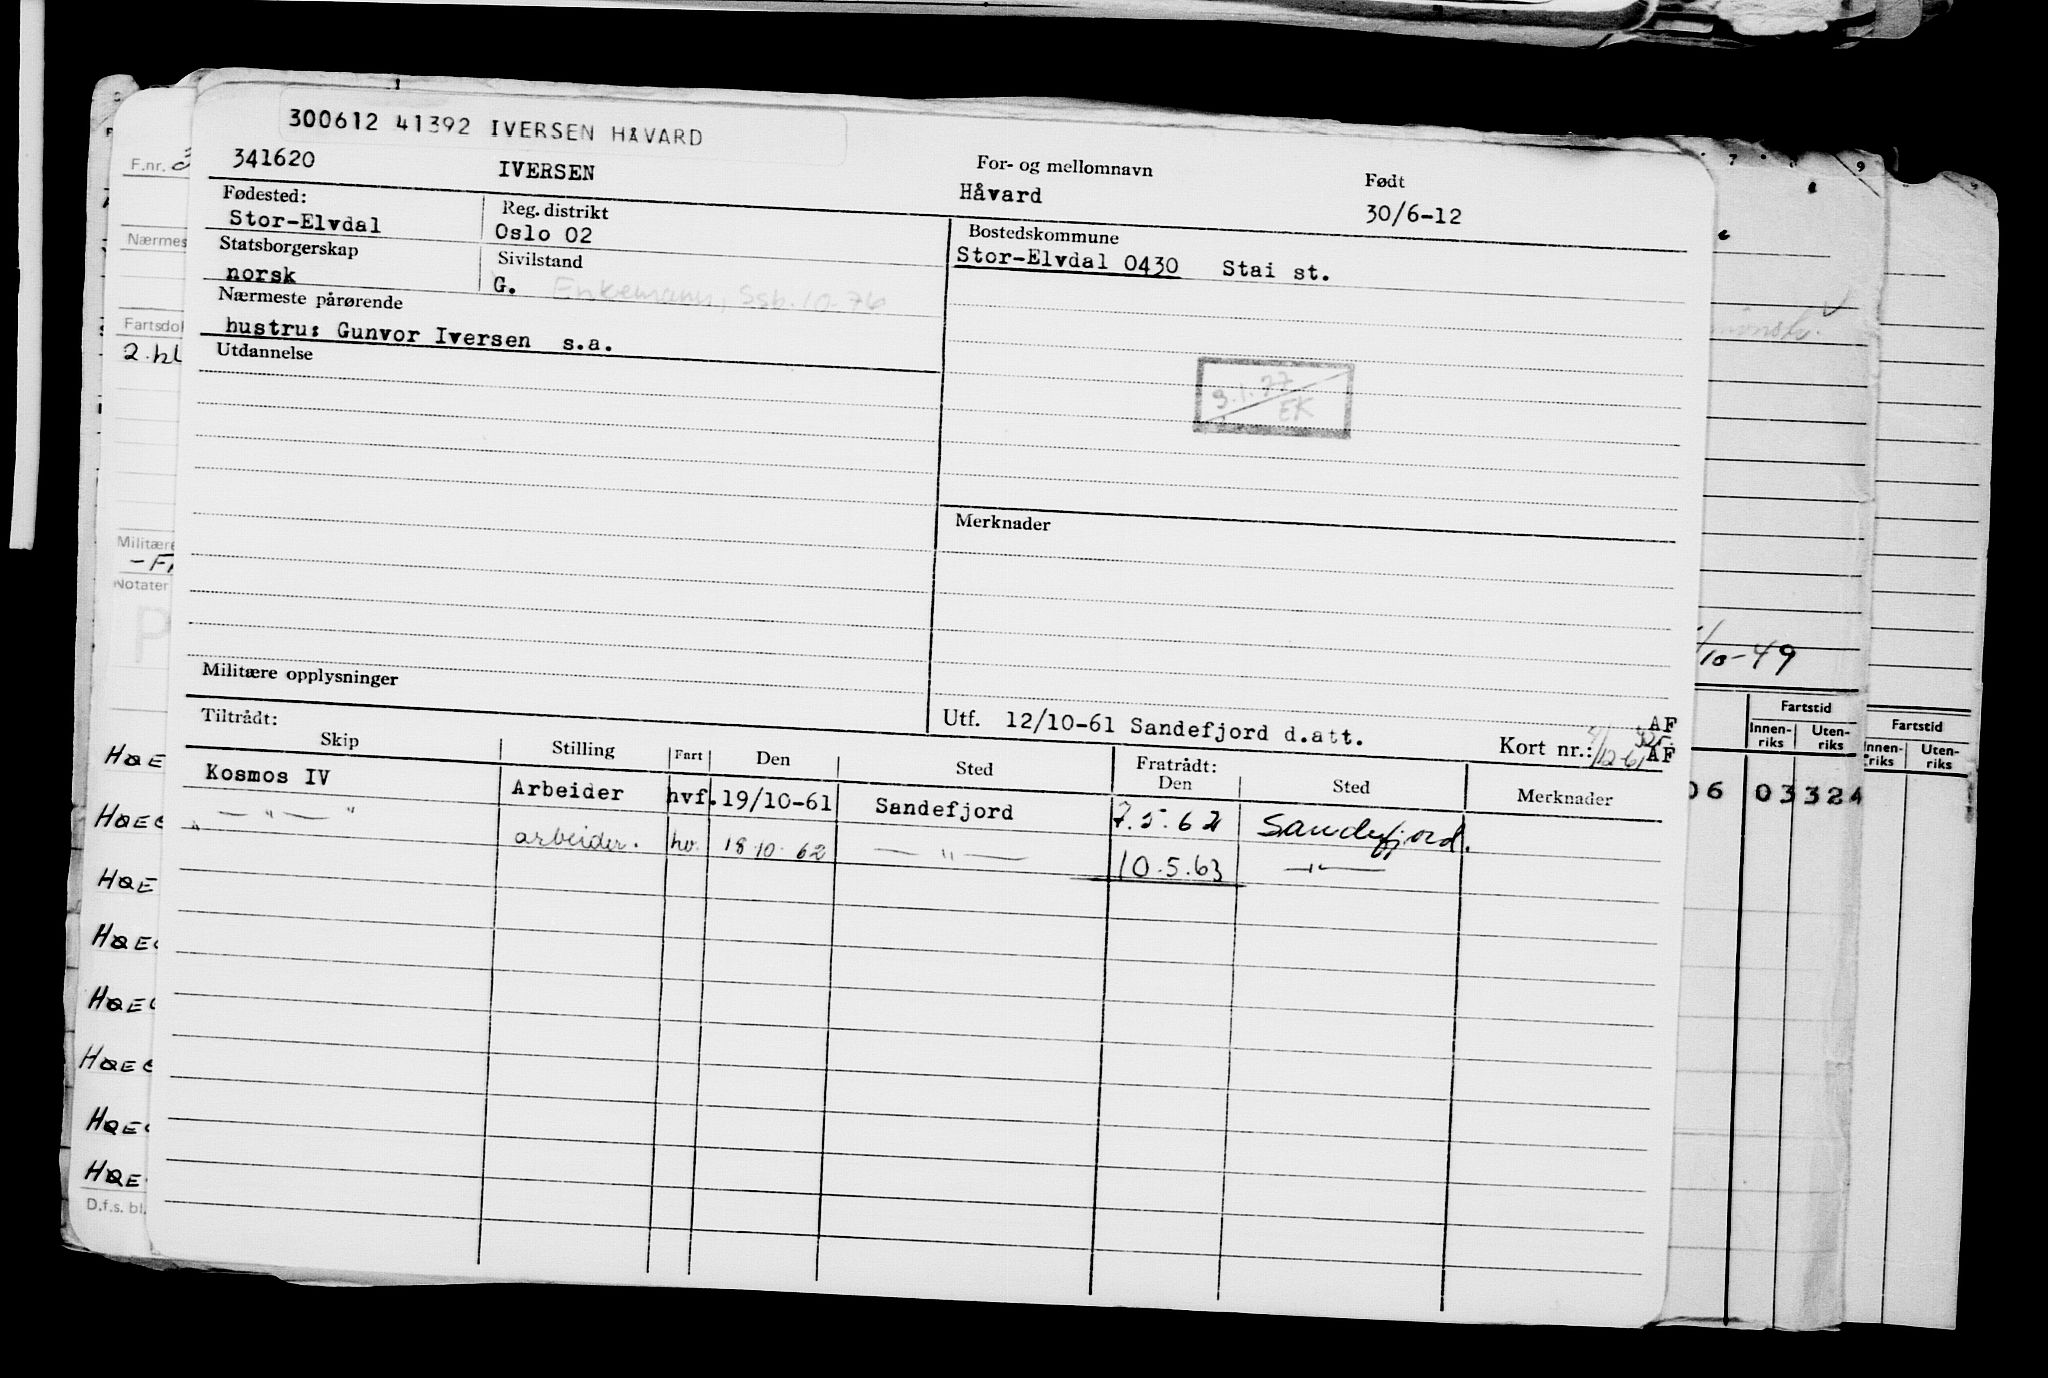 300612 41392 IVERSEN HÅVARD
341620 IVERSEN
For- og mellomnavn
Håvard
Født
30/6-12
Fødested:
Stor-Elvdal
Reg. distrikt
Oslo 02
Bostedskommune
Stor-Elvdal 0430 Stai st.
Statsborgerskap
norsk
Sivilstand
G. Enkemann, Ssb. 10-76
Nærmeste pårørende
hustru: Gunvor Iversen s.a.
Utdannelse
3.1.77
EK
Merknader
Militære opplysninger
Utf. 12/10-61 Sandefjord d.att.
AF
Kort nr.: AF
Tiltrådt:
Skip Stilling Fart Den Sted Fratrådt: Den Sted Merknader
Kosmos IV Arbeider hvf. 19/10-61 Sandefjord 7.5.62 Sandefjord.
— " — " arbeider. hv. 18.10.62 — " — 10.5.63 — " —
F.nr. 3
Nærmes
Fartsdok
2. kl
Militære
Notater
P
HØE
HØEG
HØE
HØE
HØE
HØEG
HØE
HØE
D.f.s. bl.
7
9
/10-49
Fartstid
Innen-riks
Uten-riks
06 03 324
Fartstid
Innen-riks
Uten-riks